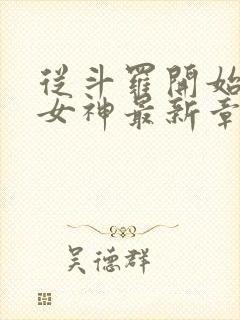 從斗羅開始
女神最新章
吴德群